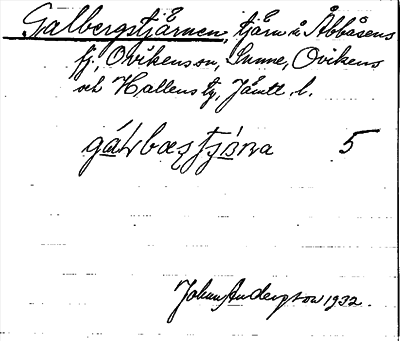 Galbergstjärnen, tjärn i Åbbåsens
fj., Ovikens sn, Sunne, Ovikens
och Hallens tg, Jämtl. l.
5
Johan Anderzson 1932.